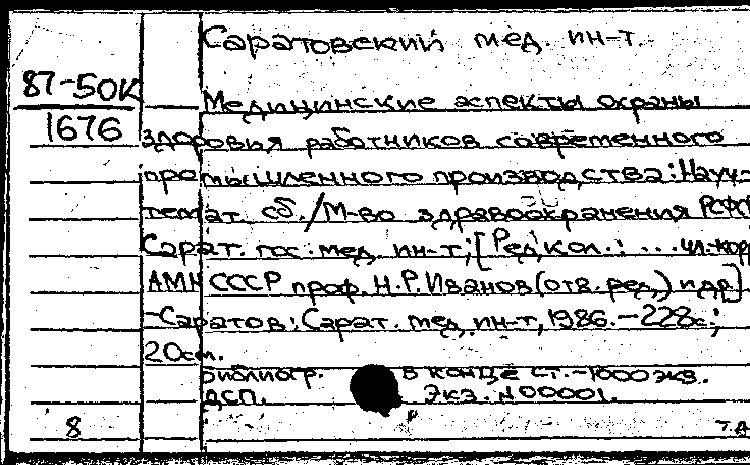 Саратовский мед. ин-т.
87-50К
1676
Медицинские аспекты охраны
здоровья работников современного
промышленного производства: Науч.-
темат. сб. / М-во здравоохранения РСФСР
Сарат. гос. мед. ин-т; [Ред. кол.: ... чл.-корр.
АМН СССР проф. Н.Р. Иванов (отв. ред.) и др.]
-Саратов: Сарат. мед. ин-т, 1986. - 228с.;
20см.
Библиогр. в конце ст. - 1000 экз.
ДСП. Экз. N 00001.
8